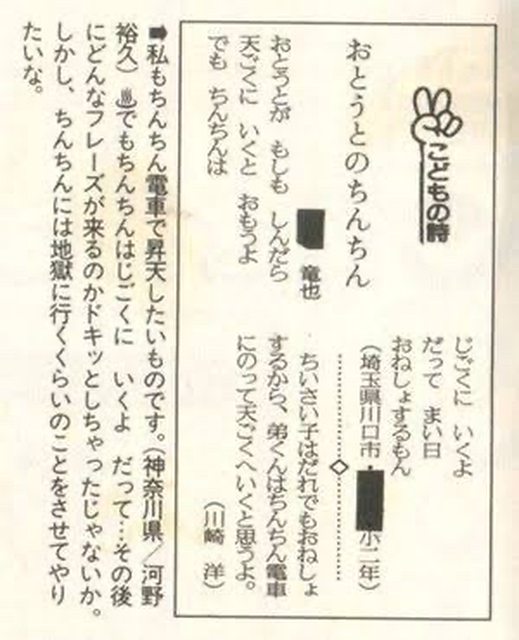 こどもの詩
おとうとのちんちん
竜也
おとうとが　もしも　しんだら
天ごくに　いくと　おもうよ
でも　ちんちんは
じごくに　いくよ
だって　まい日
おねしょするもん
（埼玉県川口市・小二年）
ちいさい子はだれでもおねしょ
するから、弟くんはちんちん電車
にのって天ごくへいくと思うよ。
（川崎　洋）
➡私もちんちん電車で昇天したいものです。（神奈川県／河野
裕久）でもちんちんはじごくに　いくよ　だって…その後
にどんなフレーズが来るのかドキッとしちゃったじゃないか。
しかし、ちんちんには地獄に行くくらいのことをさせてやり
たいな。